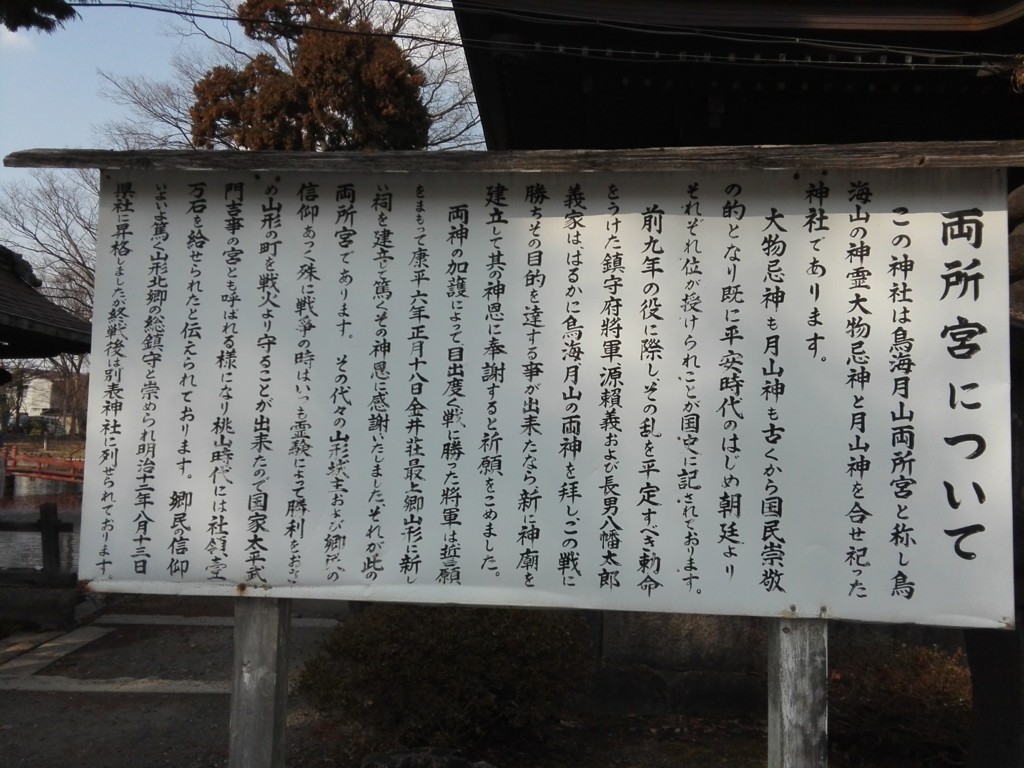 両所宮について
この神社は鳥海月山両所宮と称し鳥
海山の神霊大物忌神と月山神を合せ祀った
神社であります。
大物忌神も月山神も古くから国民崇敬
の的となり既に平安時代のはじめ朝廷より
それぞれ位が授けられことが国史に記されております。
前九年の役に際しその乱を平定すべき勅命
をうけた鎮守府将軍源頼義および長男八幡太郎
義家ははるかに鳥海月山の両神を拝しこの戦に
勝ちその目的を達する事が出来たなら新に神廟を
建立して其の神恩に奉謝すると祈願をこめました。
両神の加護によって目出度く戦に勝った将軍は誓願
をまもって康平六年正月十八日金井荘最上郷山形に新し
い祠を建立して篤くその神恩に感謝いたしました。それが此の
両所宮であります。その代々の山形城主および郷民の
信仰あつく殊に戦争の時はいつも霊験によって勝利をおさ
め山形の町を戦火より守ることが出来たので国家太平武
門吉事の宮とも呼ばれる様になり桃山時代には社領壹
万石を給せられたと伝えられております。郷民の信仰
いよいよ篤く山形北郷の総鎮守と崇められ明治十二年八月十三日
県社に昇格しましたが終戦後は別表神社に列せられております